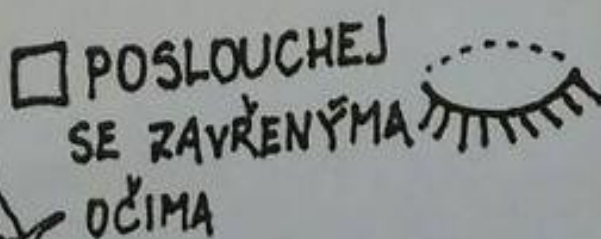 POSLOUCHEJ
SE ZAVŘENÝMA
OČIMA